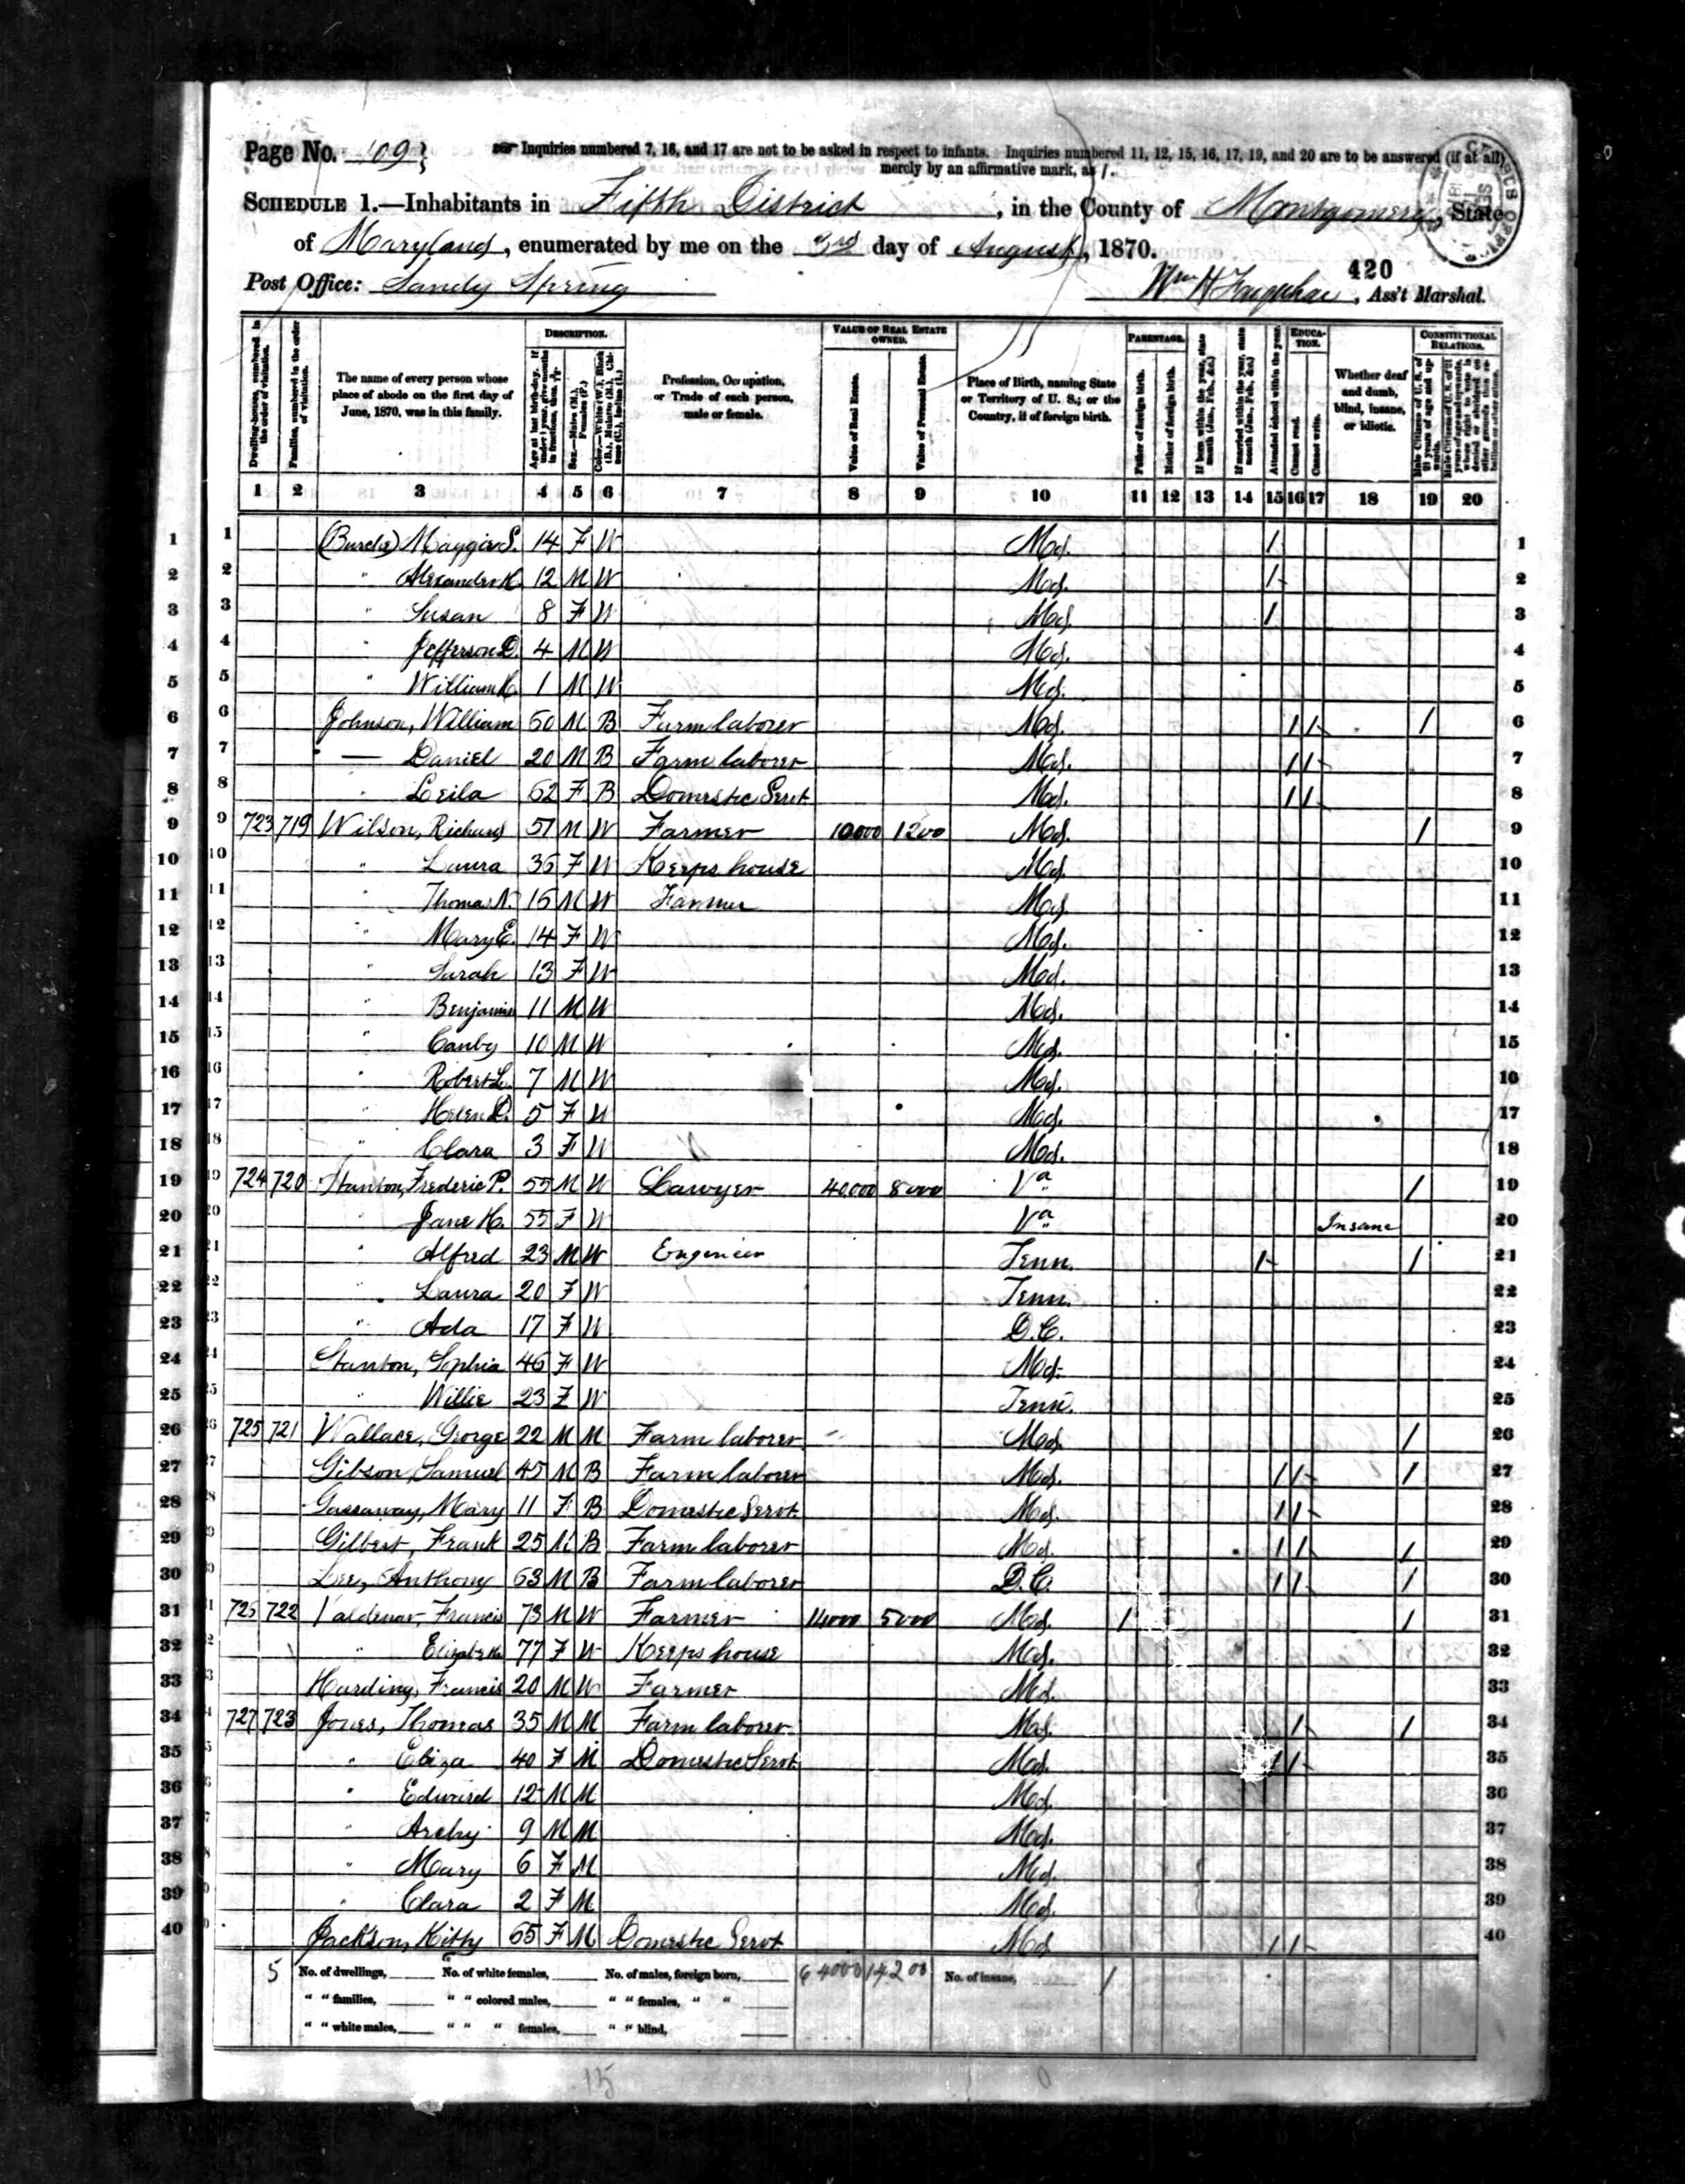 Page No. 109
Inquiries numbered 7, 16, and 17 are not to be asked in respect to infants. Inquiries numbered 11, 12, 15, 16, 17, 19, and 20 are to be answered (if at all)
merely by an affirmative mark, as /.
SCHEDULE 1.—Inhabitants in Fifth District, in the County of Montgomery, State
of Maryland, enumerated by me on the 3rd day of August, 1870.
420
Post Office: Sandy Spring
Wm H Farquhar, Ass't Marshal.
Dwelling-houses, numbered in the order of visitation.
Families, numbered in the order of visitation.
The name of every person whose place of abode on the first day of June, 1870, was in this family.
DESCRIPTION.
Age at last birth-day. If under 1 year, give months in fractions, thus, 3/12.
Sex.—Males (M.), Females (F.)
Color.—White (W.), Black (B.), Mulatto (M.), Chinese (C.), Indian (I.)
Profession, Occupation, or Trade of each person, male or female.
VALUE OF REAL ESTATE OWNED.
Value of Real Estate.
Value of Personal Estate.
Place of Birth, naming State or Territory of U. S.; or the Country, if of foreign birth.
PARENTAGE.
Father of foreign birth.
Mother of foreign birth.
If born within the year, state month (Jan., Feb., &c.)
If married within the year, state month (Jan., Feb., &c.)
Attended school within the year.
EDUCATION.
Cannot read.
Cannot write.
Whether deaf and dumb, blind, insane, or idiotic.
CONSTITUTIONAL RELATIONS.
Male Citizens of U. S. of 21 years of age and upwards.
1 2 3 4 5 6 7 8 9 10 11 12 13 14 15 16 17 18 19 20
1 Maggie S. 14 F W Md. / 1
2 " Alexander H. 12 M W Md. / 2
3 " Susan 8 F W Md. / 3
4 " Jefferson D. 4 M W Md. 4
5 " William H. 1 M W Md. 5
6 Johnson, William 50 M B Farm laborer Md. / / / 6
7 — Daniel 20 M B Farm laborer Md. / / 7
8 " Leila 62 F B Domestic Servt. Md. / / 8
9 723 719 Wilson, Richard 51 M W Farmer 10000 1200 Md. / 9
10 " Laura 36 F W Keeps house Md. 10
11 " Thomas N. 16 M W Farmer Md. 11
12 " Mary E. 14 F W Md. 12
13 " Sarah 13 F W Md. 13
14 " Benjamin 11 M W Md. 14
15 " Canby 10 M W Md. 15
16 " Robert L. 7 M W Md. 16
17 " Helen L. 5 F W Md. 17
18 " Clara 3 F W Md. 18
19 724 720 Stanton, Frederic P. 55 M W Lawyer 40000 8000 Va 19 /
20 " Jane H. 55 F W Va Insane 20
21 " Alfred 23 M W Engineer Tenn. / / 21
22 " Laura 20 F W Tenn. 22
23 " Ada 17 F W D.C. 23
24 Stanton, Sophia 46 F W Md. 24
25 " Willie 23 F W Tenn. 25
26 725 721 Wallace, George 22 M M Farm laborer Md. / 26
27 Gibson, Samuel 45 M B Farm laborer Md. / / / 27
28 Gassaway, Mary 11 F B Domestic Servt. Md. / / 28
29 Gilbert, Frank 25 M B Farm laborer Md. / / / 29
30 Lee, Anthony 63 M B Farm laborer D.C. / / / 30
31 726 722 Valdenar, Francis 73 M W Farmer 14000 5000 Md. / / 31
32 " Elizabeth 77 F W Keeps house Md. 32
33 Harding, Francis 20 M W Farmer Md. 33
34 727 723 Jones, Thomas 35 M M Farm laborer Md. / / 34
35 " Eliza 40 F M Domestic Servt. Md. / / 35
36 " Edward 12 M M Md. 36
37 " Archy 9 M M Md. 37
38 " Mary 6 F M Md. 38
39 " Clara 2 F M Md. 39
40 Jackson, Kitty 65 F M Domestic Servt Md / / 40
5 No. of dwellings, No. of white females, No. of males, foreign born, 64000 14200 No. of insane, /
" " families, " " colored males, " " females, " "
" " white males, " " " females, " " blind,
15